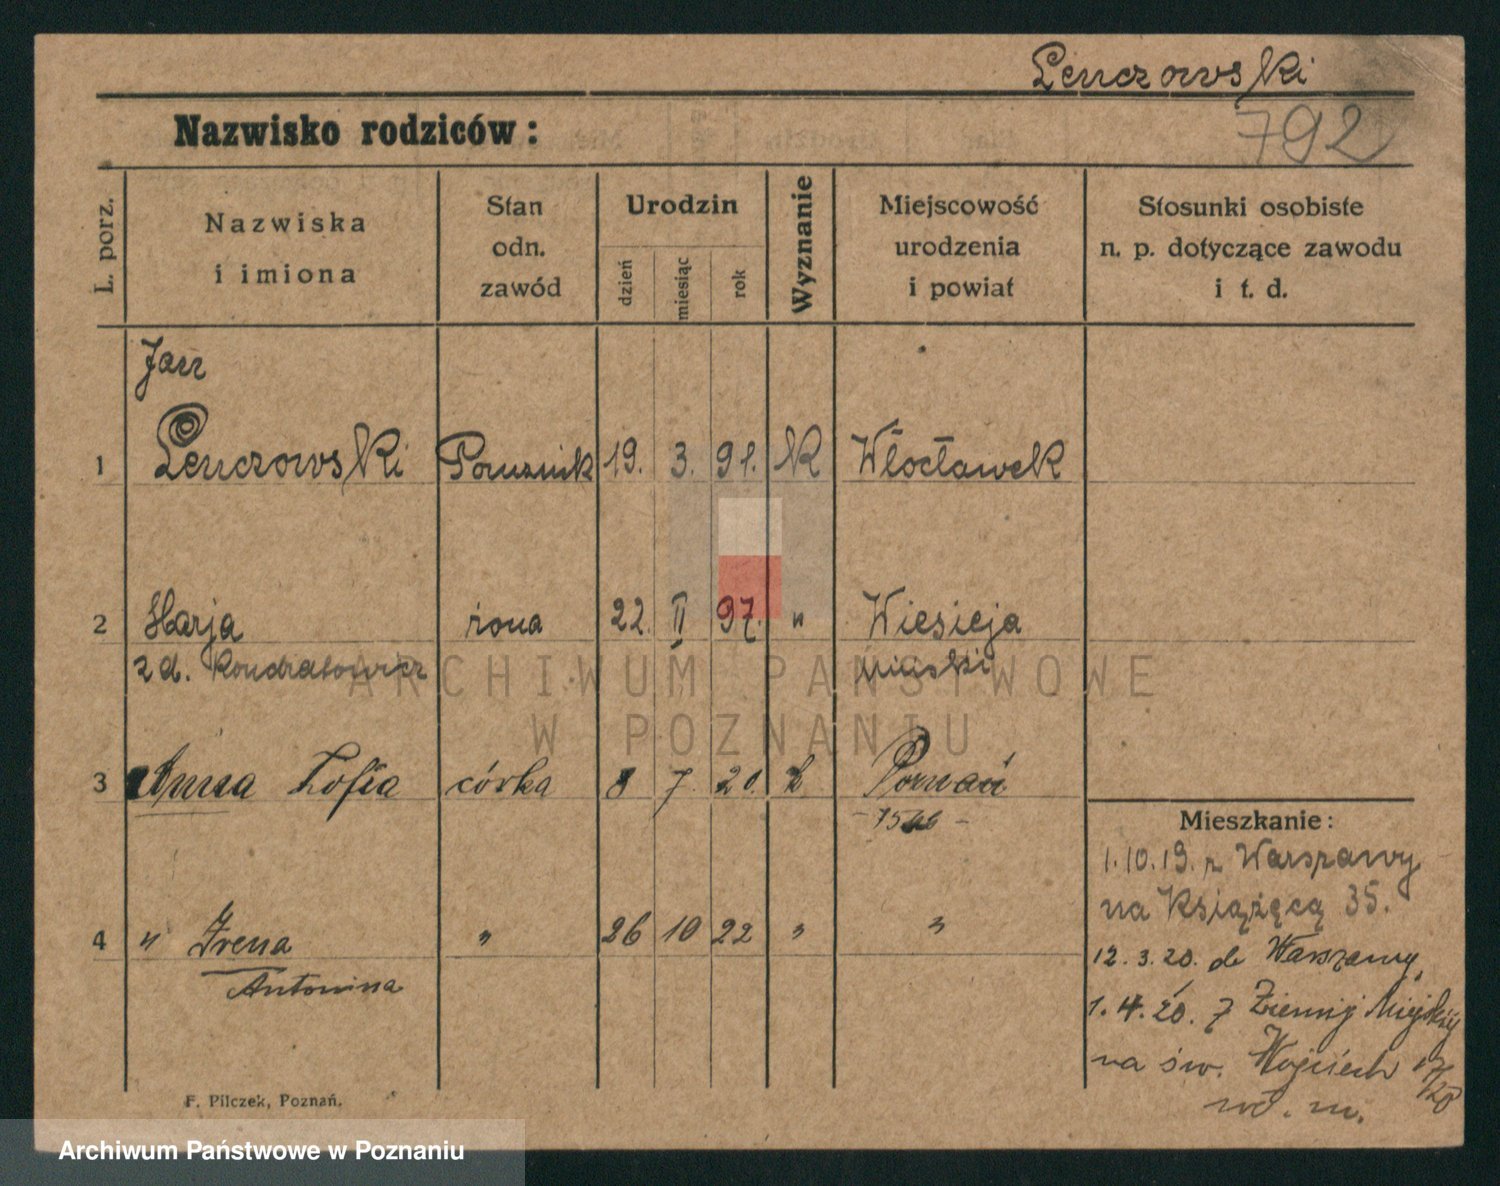 Lenczowski
Nazwisko rodziców:
792
L. porz.
Nazwiska
i imiona
Stan
odn.
zawód
Urodzin
dzień
miesiąc
rok
Wyznanie
Miejscowość
urodzenia
i powiat
Stosunki osobiste
n. p. dotyczące zawodu
i t. d.
Jan
1 Lenczowski Porucznik 19. 3. 91. K Włocławek
2 Marja żona 22. II 97. " Wiesieja
z d. Kondratowicz Miński
ARCHIWUM PAŃSTWOWE
W POZNANIU
3 Anna Zofia córka 8 7. 20. k Poznań
4 " Irena " 26 10 22 " "
Antonina
Mieszkanie:
1.10.19. z Warszawy
na Książęcą 35.
12.3.20. do Warszawy
1.4.20. z Ziemi Mińskiej
na św. Wojciech 17/20
F. Pilczek, Poznań.
Archiwum Państwowe w Poznaniu